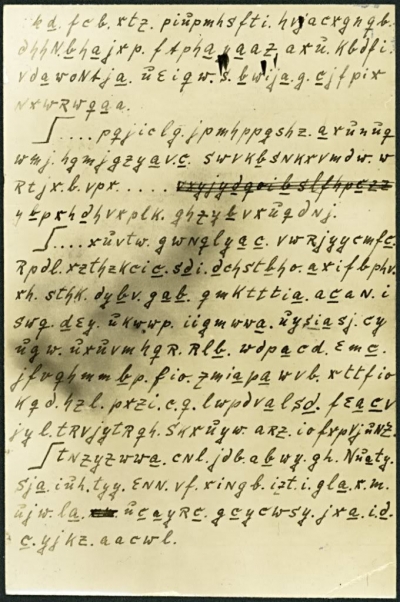 kd. fcb. xtz. piūpmhsfti. hvjacxgnqb.
dhhN.bhajxp. ftpha yaaz axū. Kbdfi.
vdawoNtja. ūEiqw. s. bwija. g. cjfpix
NxwRwqaa.
∫.... pqjiclg. jpmhppqshz. axūnūq
wmj. hgmjgzyav.c. swvKbsNKxvmdw. w
Rtjx. b. vpx. ....
ybpxhdhvxplk. ghzybvxūqdNj.
∫.... xūvtw. gwnqlyac. vwRjyycmfc.
Rpdl. xzthzKcic. sdi. dchstbho. axifbphv.
xh. sthK. dybv. gab. gmKttttia. acaN. i
swq. dEy. ūKwwp. iigmwwa. ūysiasj. cy
ūgw. ūxūvmhqR. Rlb. wdpacd. Emc.
jfvghmmbp. fio. zmiapawvb. xttfio
Kqd. hzl. pxzi. c.q. lwpdvalsd. fEacv
jyl. tRvjytRqh. SKxūyw. aRz. iofxpvjūNz.
∫tNzyzwwa. cNl. jdb. abwy. gh. Nūaty.
Sja. iūh. tyy. ENN. vf. xiNgb. izt. i. gla. x. m.
ūjw. la. ūcayRc. gcycwsy. jxa. i.d.
c. yjKz. aacwl.